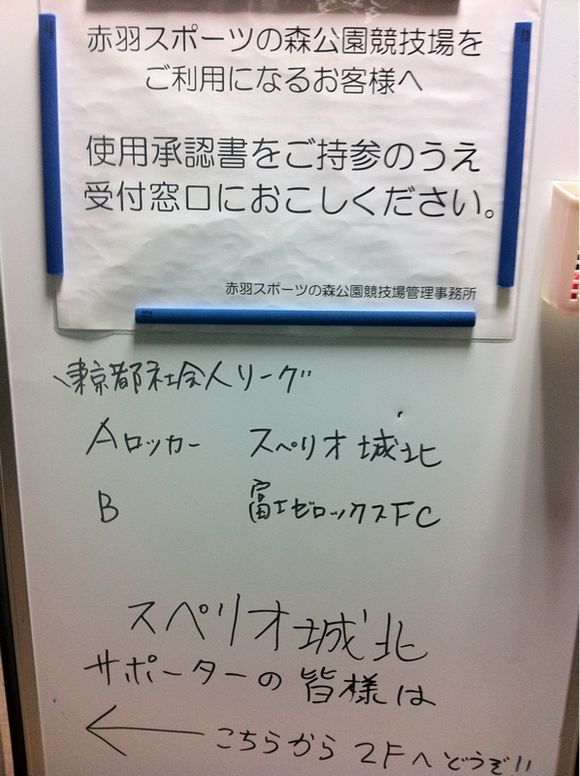 赤羽スポーツの森公園競技場を
ご利用になるお客様へ
使用承認書をご持参のうえ
受付窓口におこしください。
赤羽スポーツの森公園競技場管理事務所
東京都社会人リーグ
Aロッカー スペリオ城北
B 富士ゼロックスFC
スペリオ城北
サポーターの皆様は
← こちらから2Fへどうぞ!!